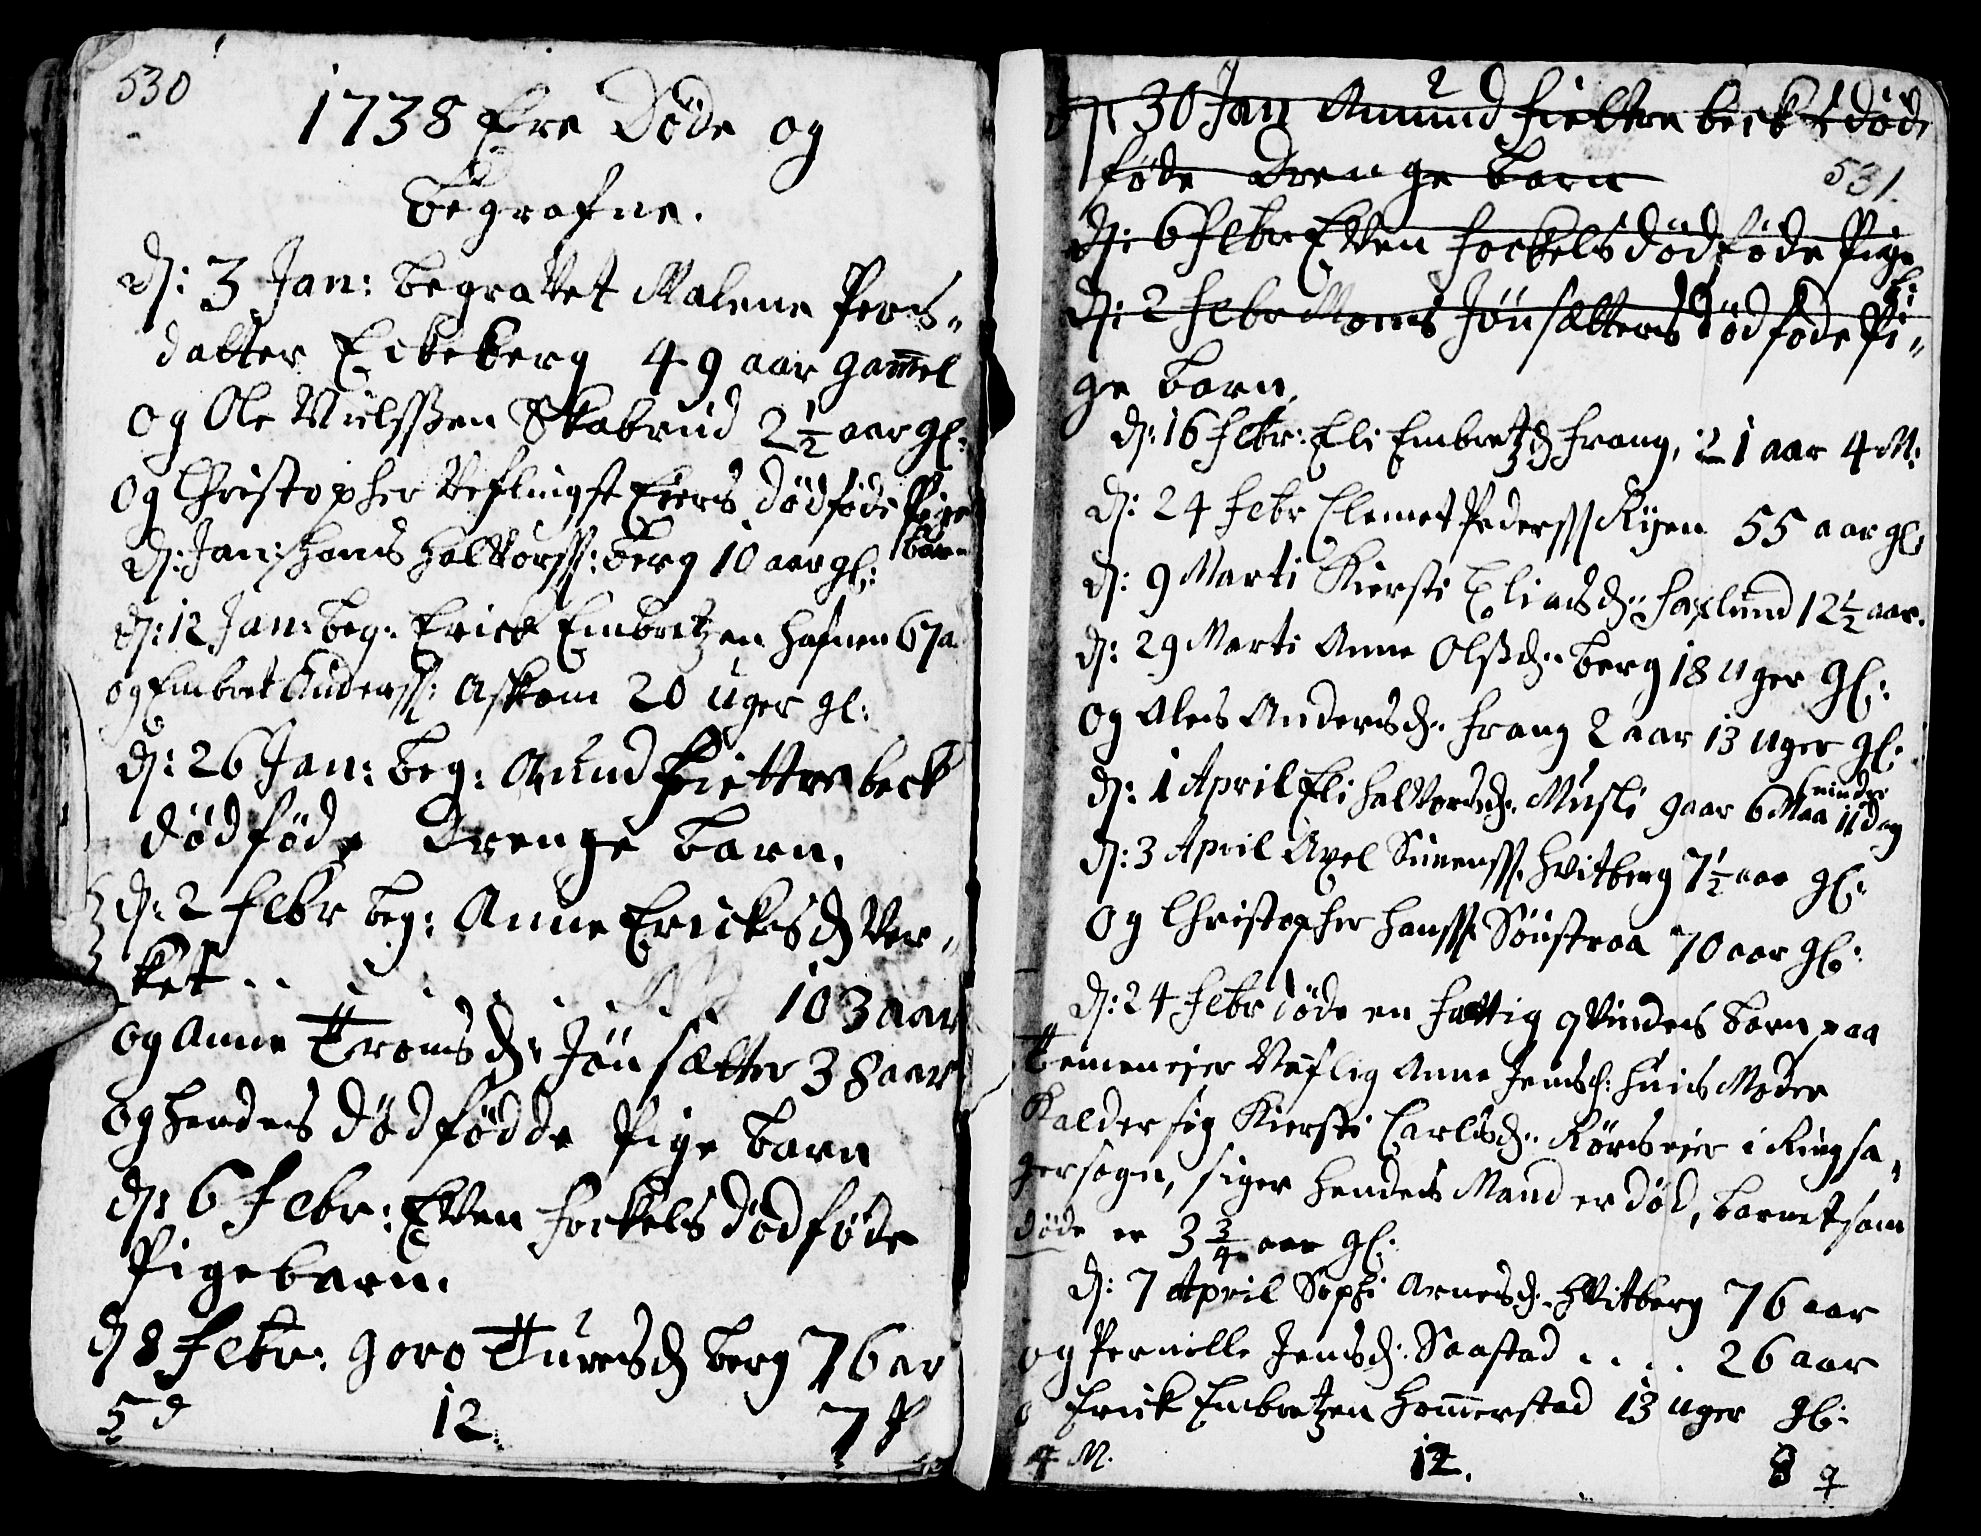 530
1738 Ere Døde og
Begrafne.
D: 3 Jan: begravet Malene Pers=
datter Eckeberg 49 aar gam̄el
og Ole Nielsßen Skabrud 2½ aar gl:
og Christopher Veflingst Eiers dødføde Pige
barn
D: Jan: Hans Halvorss: Berg 10 aar gl:
D: 12 Jan: beg: Erick Embretzen Hafnen 67 a
og Embret Anderss: Askom 20 Uger gl:
D: 26 Jan: beg: Amund Fiettrebeck
dødføde Drenge barn.
D: 2 Febr beg: Anne Ericksd Ver=
ket . . . . . . 103 aar
og Anne Tromsd: Jønsætter 38 aar
og hendes dødfødde Pige barn
D: 6 Febr: Even Fockels dødføde
Pigebarn.
D 8 Febr: Goro Turesd Berg 76 ar
5 d 12. 7 P
D: 30 Jan Amund Fiettrebeck døde
føde Drenge barn
531.
D: 6 Febr Even Fockels dødføde Pige
b:
D: 2 Febr Moens Jønsætters dødføde Pi=
ge barn.
D: 16 Febr: Eli Embretzd Frang, 1 aar 4 M:
D: 24 Febr Clemet Pederss Ryen 55 aar gl:
D: 9 Marti Kiersti Eliasd: Faxlund 12½ aar.
D: 29 Marti Anne Olsd: Berg 18 Uger gl:
og Ales Andersd: Frang 2 aar 13 Uger gl:
D: 1 April Eli Halvorsd: Musli 9 aar 6 Maa 11 dag
mindre
D: 3 April Axel Simenss. Hvitberg 7½ aar gl:
og Christopher Hanss Sønstraa 70 aar gl:
D: 24 Febr døde en fattig qvindes barn paa
Temeneier Veflig Anne Jensd: huis Moder
Kalder sig Kiersti Carlsd: Rørseier i Ringsa=
gersogn, siger hendes Mand er død, barnet som
døde er 3¾ aar gl:
D: 7 April Sophi Arnesd: Hvitberg 76 aar
og Pernille Jensd: Saastad . . . . 26 aar
o Erick Embretzen Hom̄erstad 13 Uger gl:
4 M. 12. 8 ♀